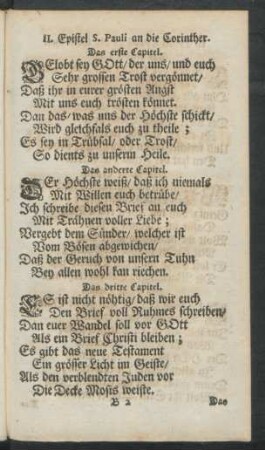 II. Epistel S. Pauli an die Corinther.
Das erste Capitel.
GElobt sey GOtt/ der uns/ und euch
Sehr grossen Trost vergönnet/
Daß ihr in eurer grösten Angst
Mit uns euch trösten könnet.
Dan das/ was uns der Höchste schickt/
Wird gleichfals euch zu theile;
Es sey in Trübsal/ oder Trost/
So dients zu unserm Heile.
Das andere Capitel.
DEr Höchste weiß/ daß ich niemals
Mit Willen euch betrübe/
Ich schreibe diesen Brief an euch
Mit Trähnen voller Liebe;
Vergebt dem Sünder/ welcher ist
Vom Bösen abgewichen/
Daß der Geruch von unserm Tuhn
Bey allen wohl kan riechen.
Das dritte Capitel.
ES ist nicht nöhtig/ daß wir euch
Den Brief voll Ruhmes schreiben/
Dan euer Wandel soll vor GOtt
Als ein Brief Christi bleiben;
Es gibt das neue Testament
Ein grösser Licht im Geiste/
Als den verblendten Juden vor
Die Decke Mosis weiste.
B 2 Das